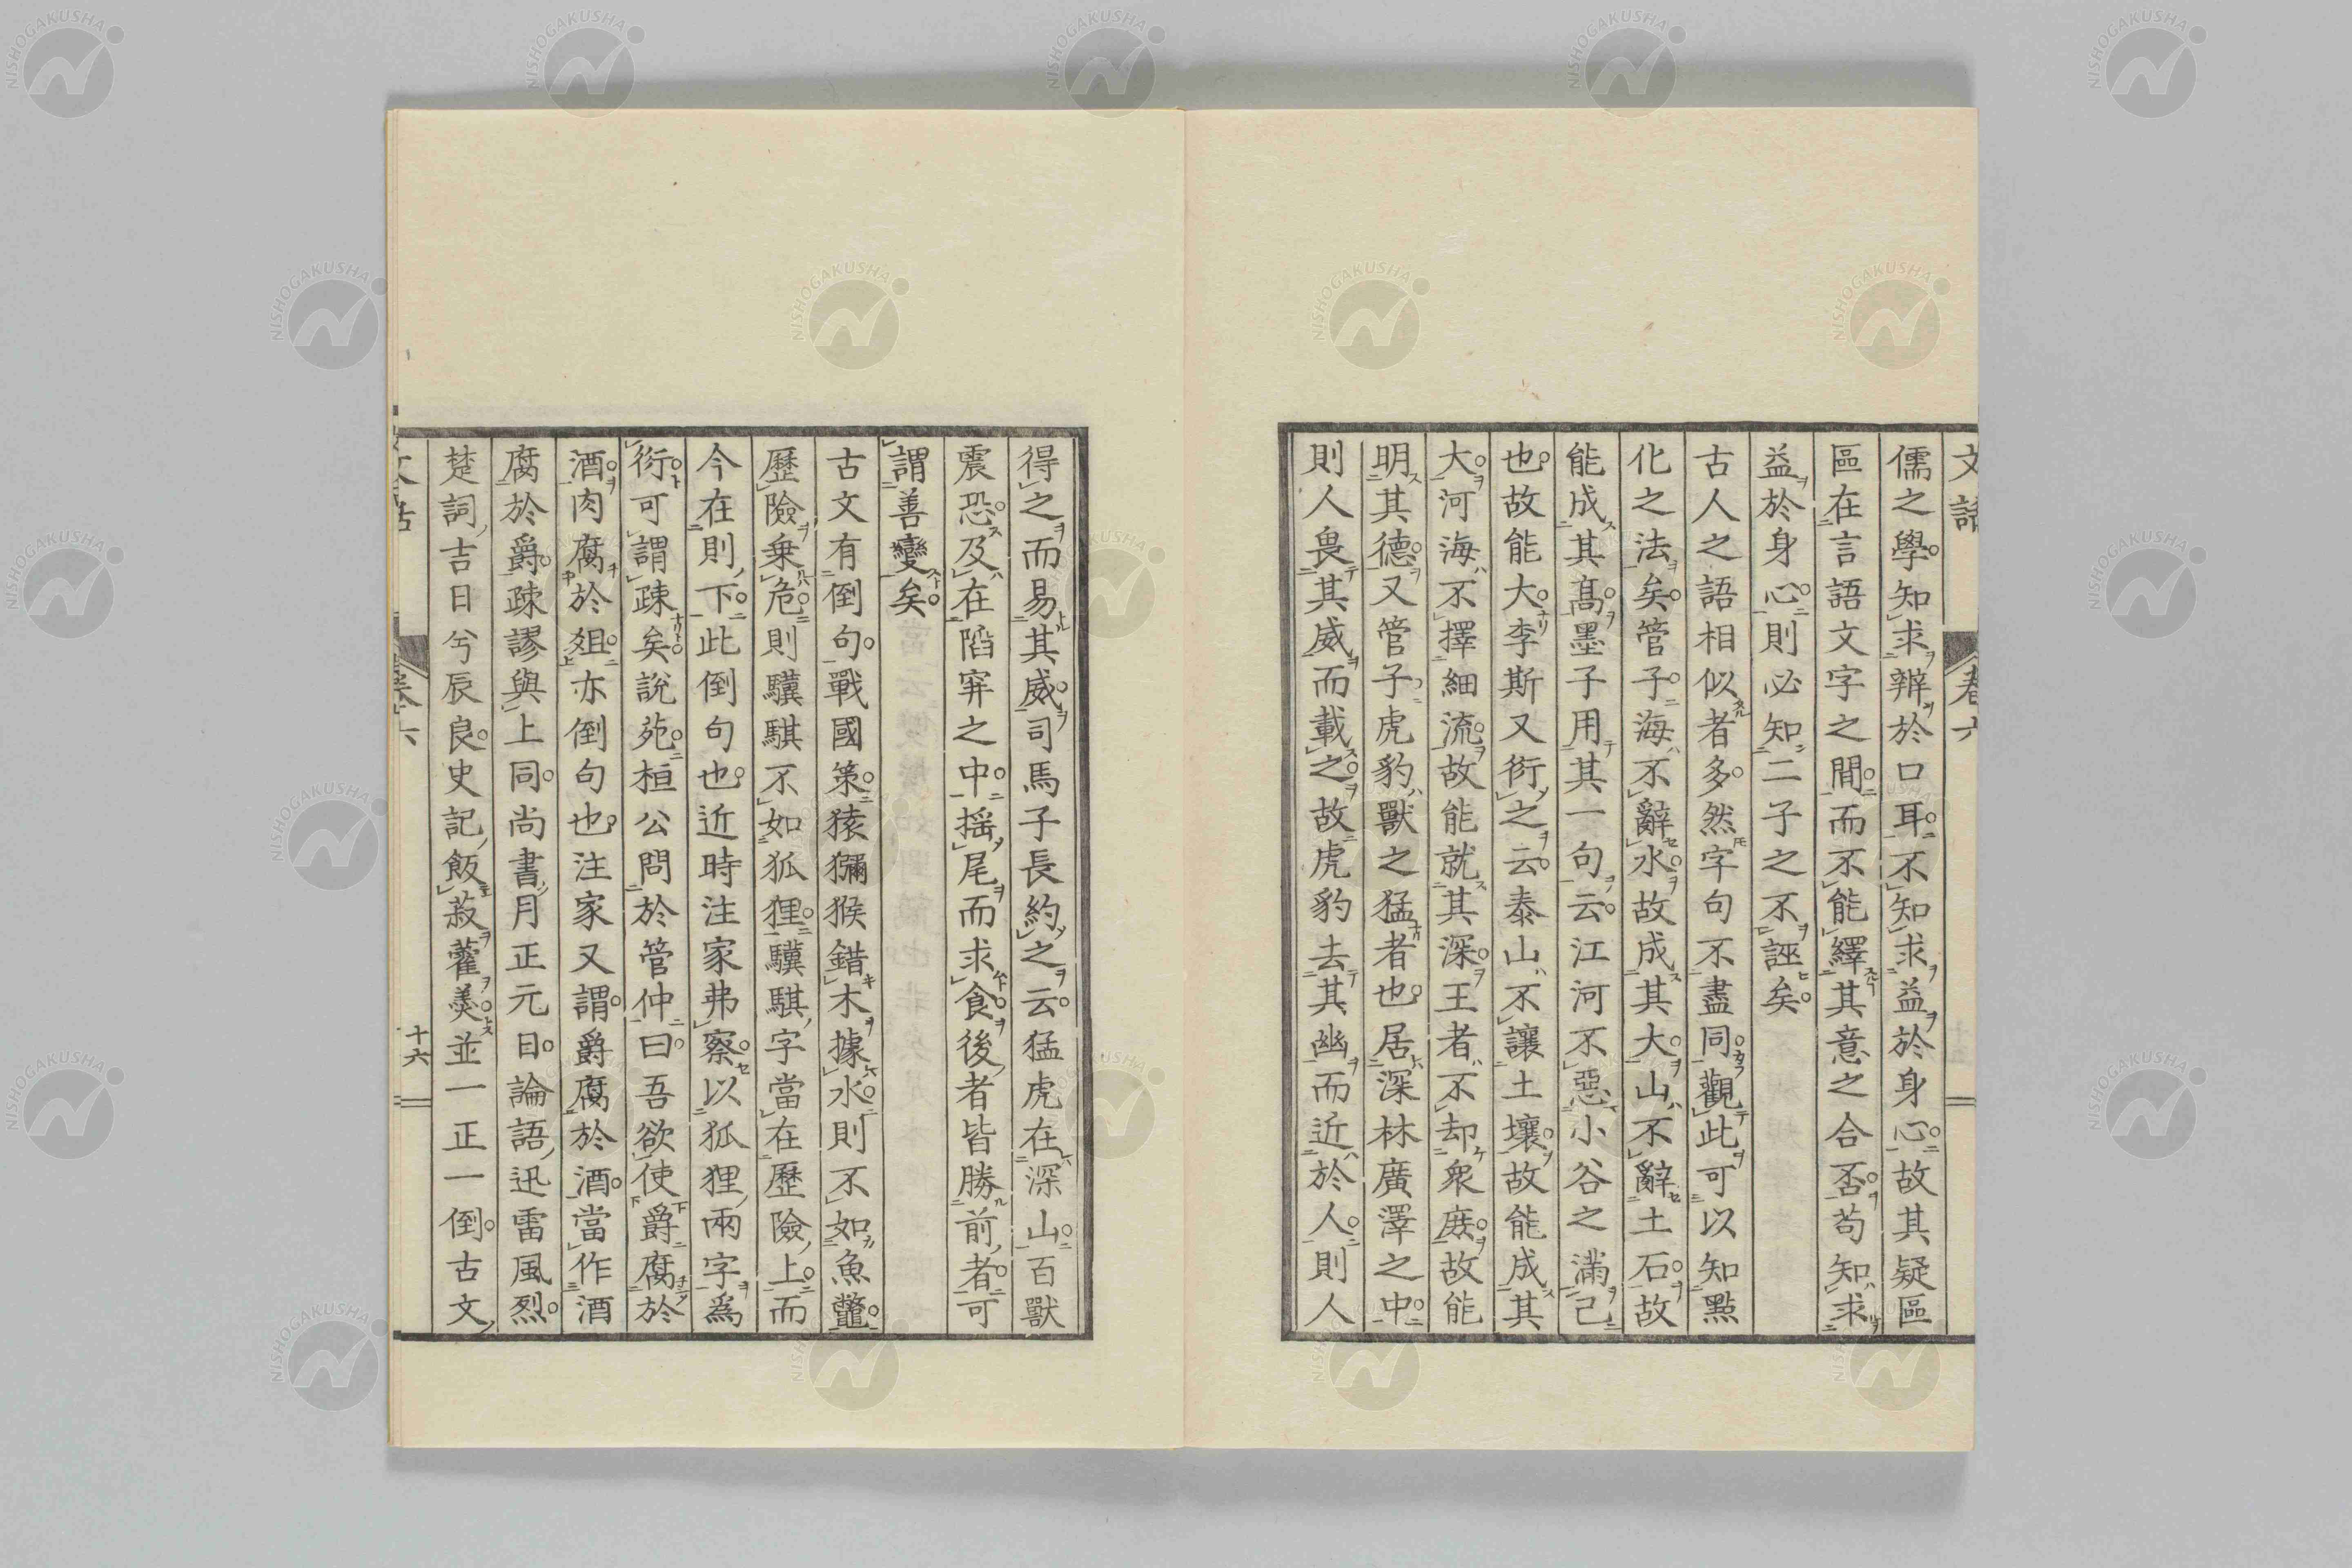 文話 卷六
儒之學。知求辨於口耳。不知求益於身心。故其疑區
區在言語文字之間。而不能繹其意之合否。苟知求
益於身心。則必知二子之不誣矣。
古人之語相似者多。然字句不盡同。觀此可以知點
化之法矣。管子。海不辭水。故成其大。山不辭土石。故
能成其高。墨子用其一句云。江河不惡小谷之滿己
也。故能大。李斯又衍之云。泰山不讓土壤。故能成其
大。河海不擇細流。故能就其深。王者不却衆庶。故能
明其德。又管子。虎豹獸之猛者也。居深林廣澤之中。
則人畏其威而載之。故虎豹去其幽而近於人。則人
得之而易其威。司馬子長約之云。猛虎在深山。百獸
震恐。及在陷穽之中。搖尾而求食。後者皆勝前者。可
謂善變矣。
古文有倒句。戰國策。猿獼猴錯木據水。則不如魚鼈。
歷險乘危。則騏驥不如狐狸。騏驥字當在歷險上。而
今在則下。此倒句也。近時注家弗察。以狐狸兩字爲
衍。可謂疎矣。說苑。桓公問於管仲曰。吾欲使爵腐於
酒。肉腐於俎。亦倒句也。注家又謂。爵腐於酒。當作酒
腐於爵。疎謬與上同。尚書月正元日。論語迅雷風烈。
楚詞吉日兮辰良。史記飯菽藿羹。並一正一倒。古文
卷六 十六